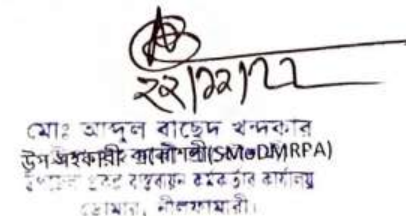 ২২/১১/২২
মোঃ আব্দুল বাছেদ খন্দকার
উপ সহকারী প্রকৌশলী(SMoDMRPA)
উপজেলা প্রকল্প বাস্তবায়ন কর্মকর্তার কার্যালয়
ডোমার, নীলফামারী।